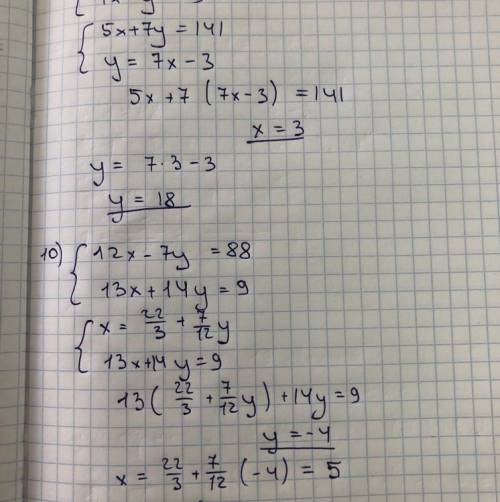 5x+7y=141
y = 7x-3
5x+7 (7x-3) =141
x = 3
y = 7·3-3
y = 18
10) 12x-7y =88
13x+14y=9
x= 22/3 + 7/12 y
13x+14y=9
13(22/3 + 7/12 y) +14y=9
y =-4
x= 22/3 + 7/12 (-4) = 5